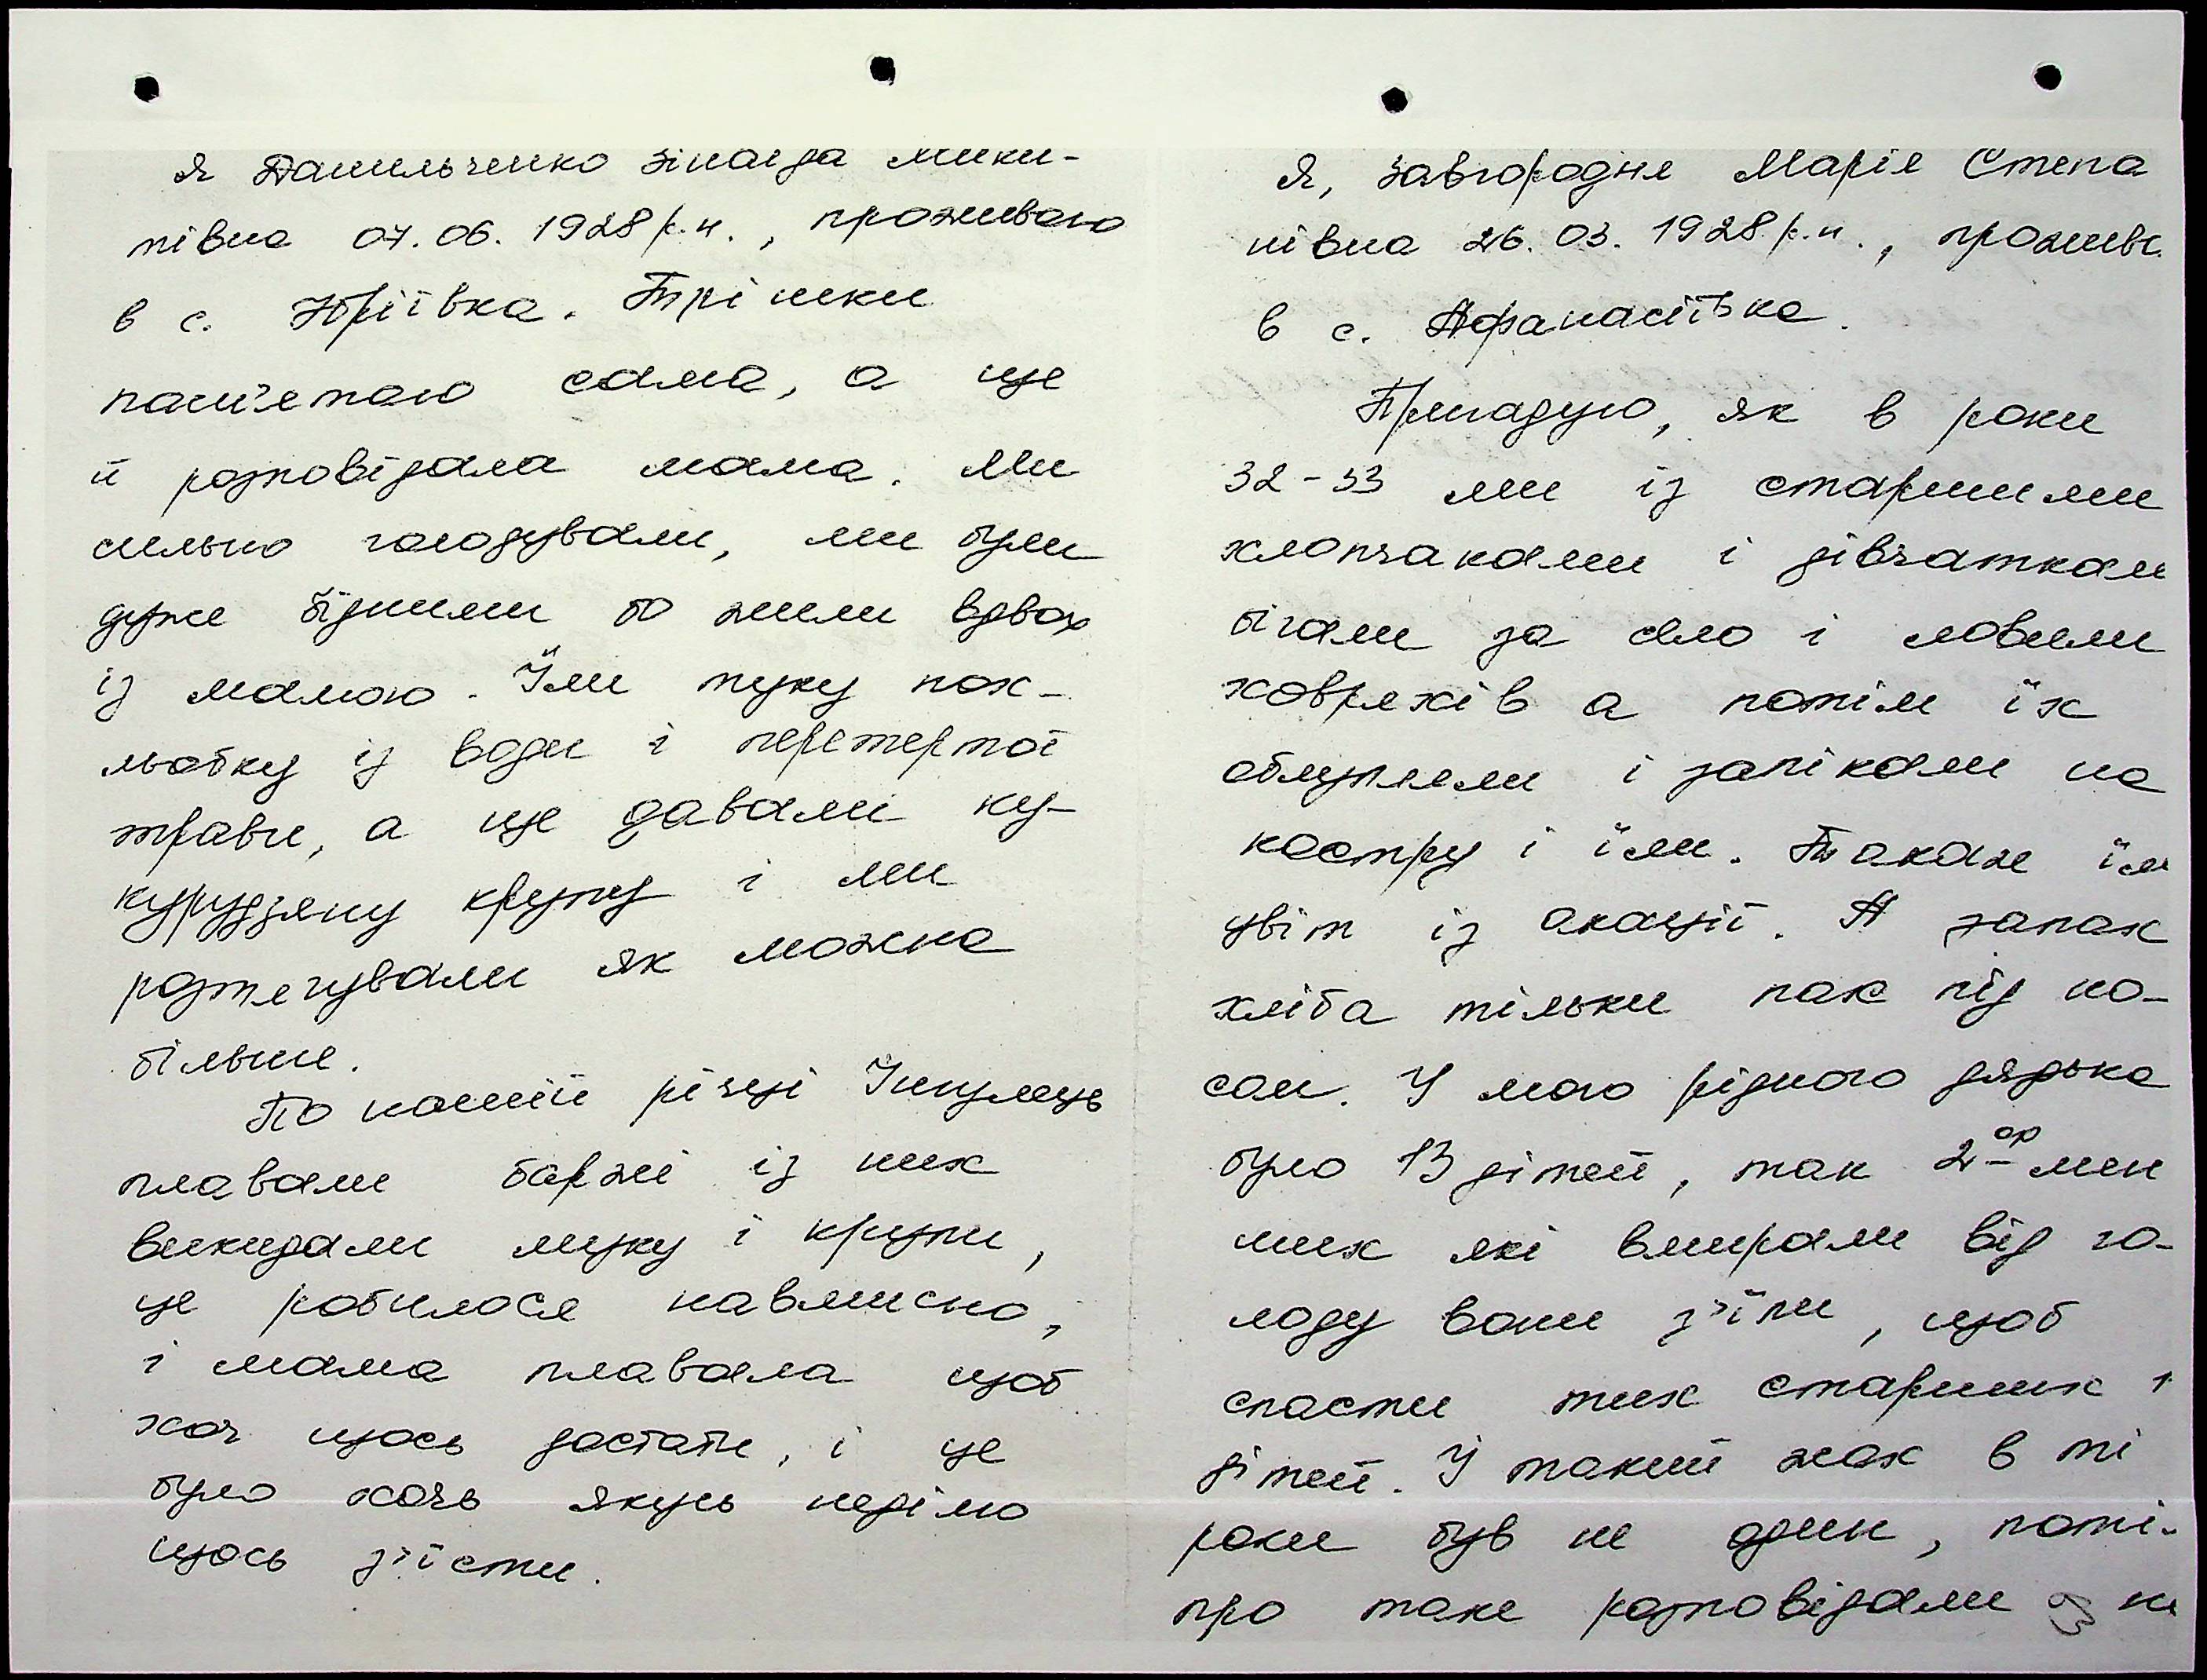 Я Данильченко Зінаїда Мики-
півна 07.06.1928 р.н., проживаю
в с. Юріївка. Трішки
пам'ятаю сама, а ще
й розповідала мама. Ми
сильно голодували, ми були
дуже бідними бо жили вдвох
із мамою. Їли пуку пох-
льобку із води і перетертої
трави, а ще давали ку-
курудзяну крупу і ми
розтягували як можна
більше.
По нашій річці Інгулець
плавали баржі із них
викидали муку і крупи,
це робилося навмисно,
і мама плавала щоб
хоч щось достати, і це
було хочь якусь неділю
щось з'їсти.
Я, Завгородня Марія Степа
нівна 26.03.1928 р.н., прожива
в с. Афанасіївка.
Пригадую, як в роки
32-33 ми із старшими
хлопчаками і дівчаткам
бігали за село і ловили
ховряхів а потім їх
облупляли і запікали на
костру і їли. Также їли
цвіт із акації. А запах
хліба тільки пах під но-
сом. У мого рідного дядька
було 13 дітей, так 2-ор мен
ших які вмирали від го-
лоду вони з'їли, щоб
спасти тих старших
дітей. І такий жах в ті
роки був не один, поті-
про таке розповідали